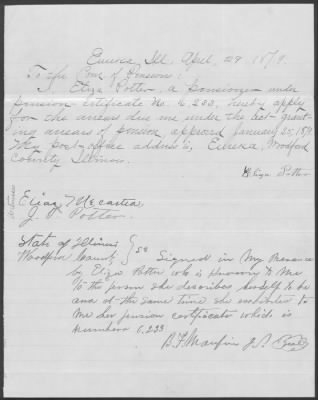 Eureka, Ill, April 29 1879.
To the Com. of Pensions:
I, Eliza Potter, a pensioner under
pension certificate No. 6,233, hereby apply
for the arears due me under the act grant-
ing arears of pension, approved January 25, 1879.
My post-office address is, Eureka, Woodford
County Illinois.
Eliza Potter
Witnesses
Elijah
J. J. Potter.
State of Illinois
Woodford County } SS
Signed in My Presence
by Eliza Potter who is Known to Me
to the person she describes herself to be
and at the same time she exhibites to
me her pension certificate which is
number 6,233
B. F. J.P. Seal